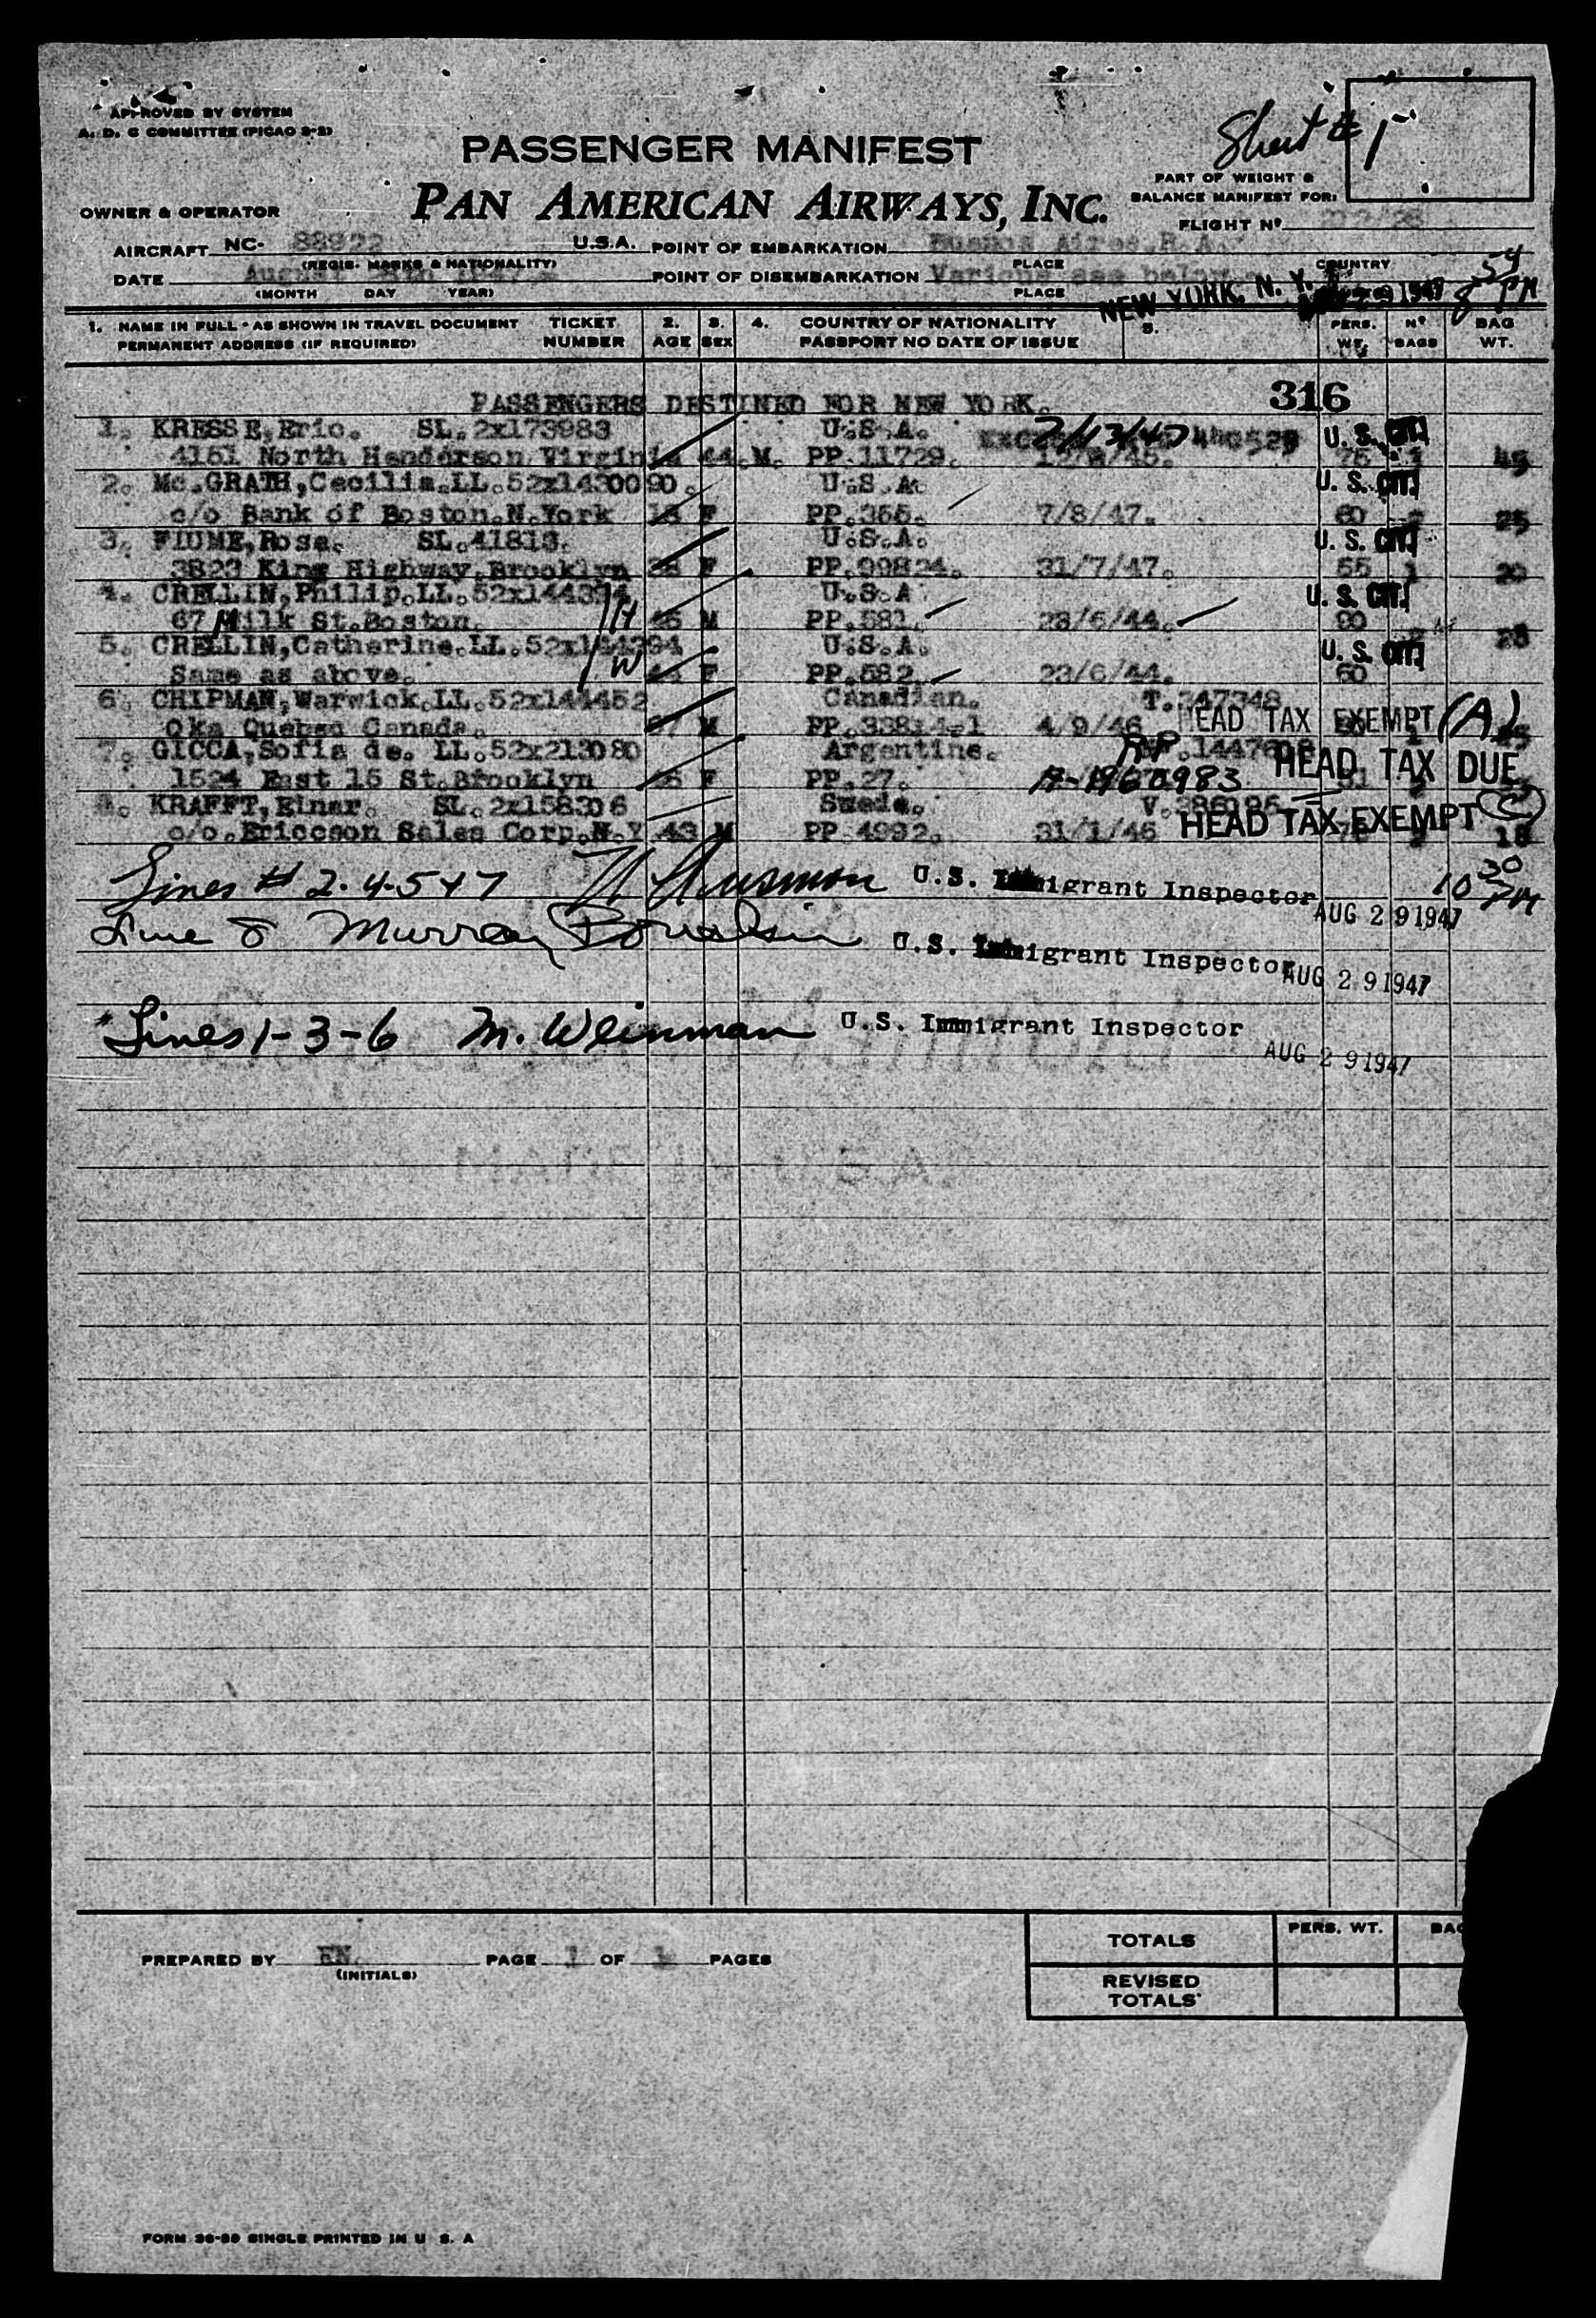 APPROVED BY SYSTEM
A. D. C COMMITTEE (PICAO 2-2)
Sheet # 1
PASSENGER MANIFEST
PART OF WEIGHT &
BALANCE MANIFEST FOR:
PAN AMERICAN AIRWAYS, INC.
OWNER & OPERATOR
FLIGHT Nº
AIRCRAFT NC- 88922 U.S.A. POINT OF EMBARKATION Buenos Aires, R.A.
(REGIS. MARKS & NATIONALITY) PLACE COUNTRY
DATE August POINT OF DISEMBARKATION Various see below
(MONTH DAY YEAR) PLACE NEW YORK, N. Y. 1947 8 54 PM
1. NAME IN FULL - AS SHOWN IN TRAVEL DOCUMENT TICKET 2. 3. 4. COUNTRY OF NATIONALITY 5. PERS. Nº BAG
PERMANENT ADDRESS (IF REQUIRED) NUMBER AGE SEX PASSPORT NO DATE OF ISSUE WT. BAGS WT.
PASSENGERS DESTINED FOR NEW YORK. 316
1. KRESSE, Eric. SL.2x173983 U.S.A. 7/13/47 U. S. CIT.
4151 North Henderson Virginia 44 M. PP.11729. 75 1 45
2. Mc.GRATH, Cecilia.LL.52x1430090. U.S.A. U. S. CIT.
c/o Bank of Boston.N.York F PP.355. 7/8/47. 60 25
3. FIUME, Rosa. SL.41813. U.S.A. U. S. CIT.
3823 King Highway, Brooklyn F PP.99824. 31/7/47. 55 1 20
4. CRELLIN, Philip.LL.52x144394 U.S.A. U. S. CIT.
67 Milk St.Boston. H M PP.581. 23/6/44. 90
5. CRELLIN, Catherine.LL.52x144394 U.S.A. U. S. CIT.
Same as above. W F PP.582. 23/6/44. 60
6. CHIPMAN, Warwick.LL.52x144452 Canadian. T.347348
Oka Quebec Canada. 67 M PP.33814-1 4/9/46 HEAD TAX EXEMPT (A)
7. GICCA, Sofia de. LL.52x213080 Argentine. RP
1524 East 15 St.Brooklyn F PP.27. A-1960983 HEAD TAX DUE
8. KRAFFT, Einar. SL.2x158306 Swede.
c/o.Ericcson Sales Corp.N.Y 43 M PP 4992. 31/1/46 HEAD TAX EXEMPT (C) 18
Lines # 2-4-5+7 U.S. Immigrant Inspector 10 30 PM
AUG 29 1947
Line 8 Murray U.S. Immigrant Inspector AUG 29 1947
Lines 1-3-6 M. Weinman U.S. Immigrant Inspector
AUG 29 1947
TOTALS PERS. WT.
PREPARED BY EN. PAGE 1 OF 1 PAGES
(INITIALS)
REVISED
TOTALS
FORM 36-89 SINGLE PRINTED IN U S. A